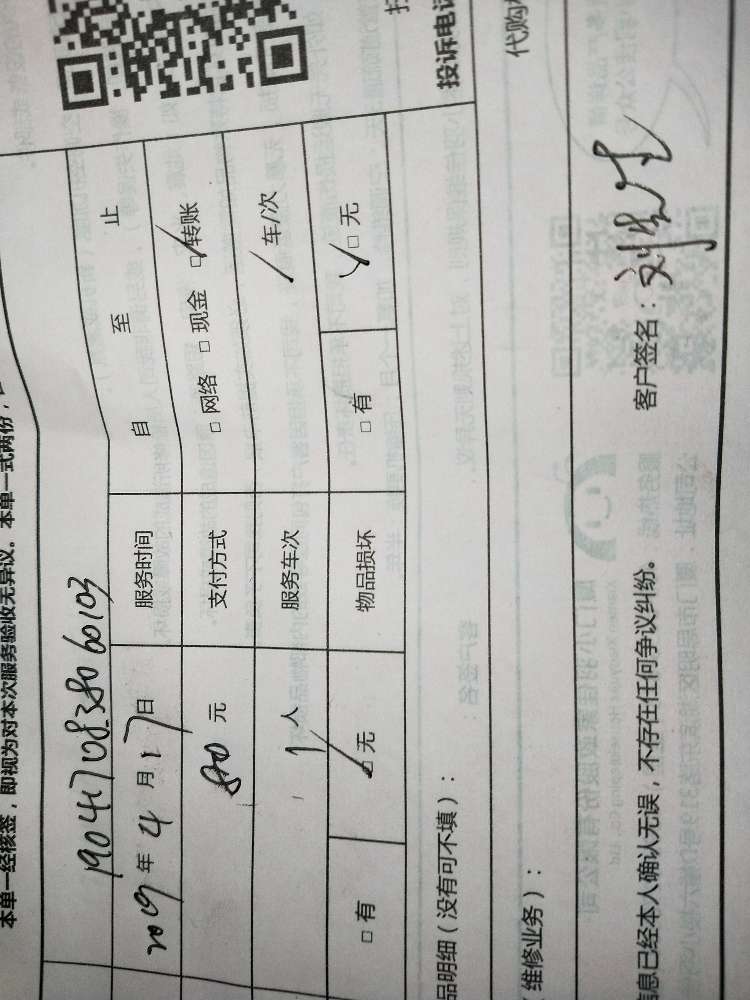 投诉电话
代购
本单一经核签，即视为对本次服务验收无异议。本单一式两份，
190417083806 0103
2019年4月17日 服务时间 自 至 止
元 支付方式 □网络 □现金 ☑转账
1人 服务车次 / 车/次
□有 ☑无 物品损坏 □有 ☑无
品明细（没有可不填）：
维修业务）：
信息已经本人确认无误，不存在任何争议纠纷。 客户签名：刘先生